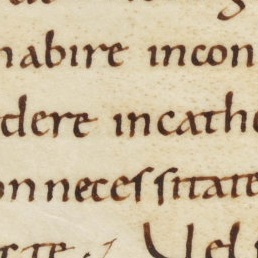 habire incon
dere incatho
onnecessitate
Vel